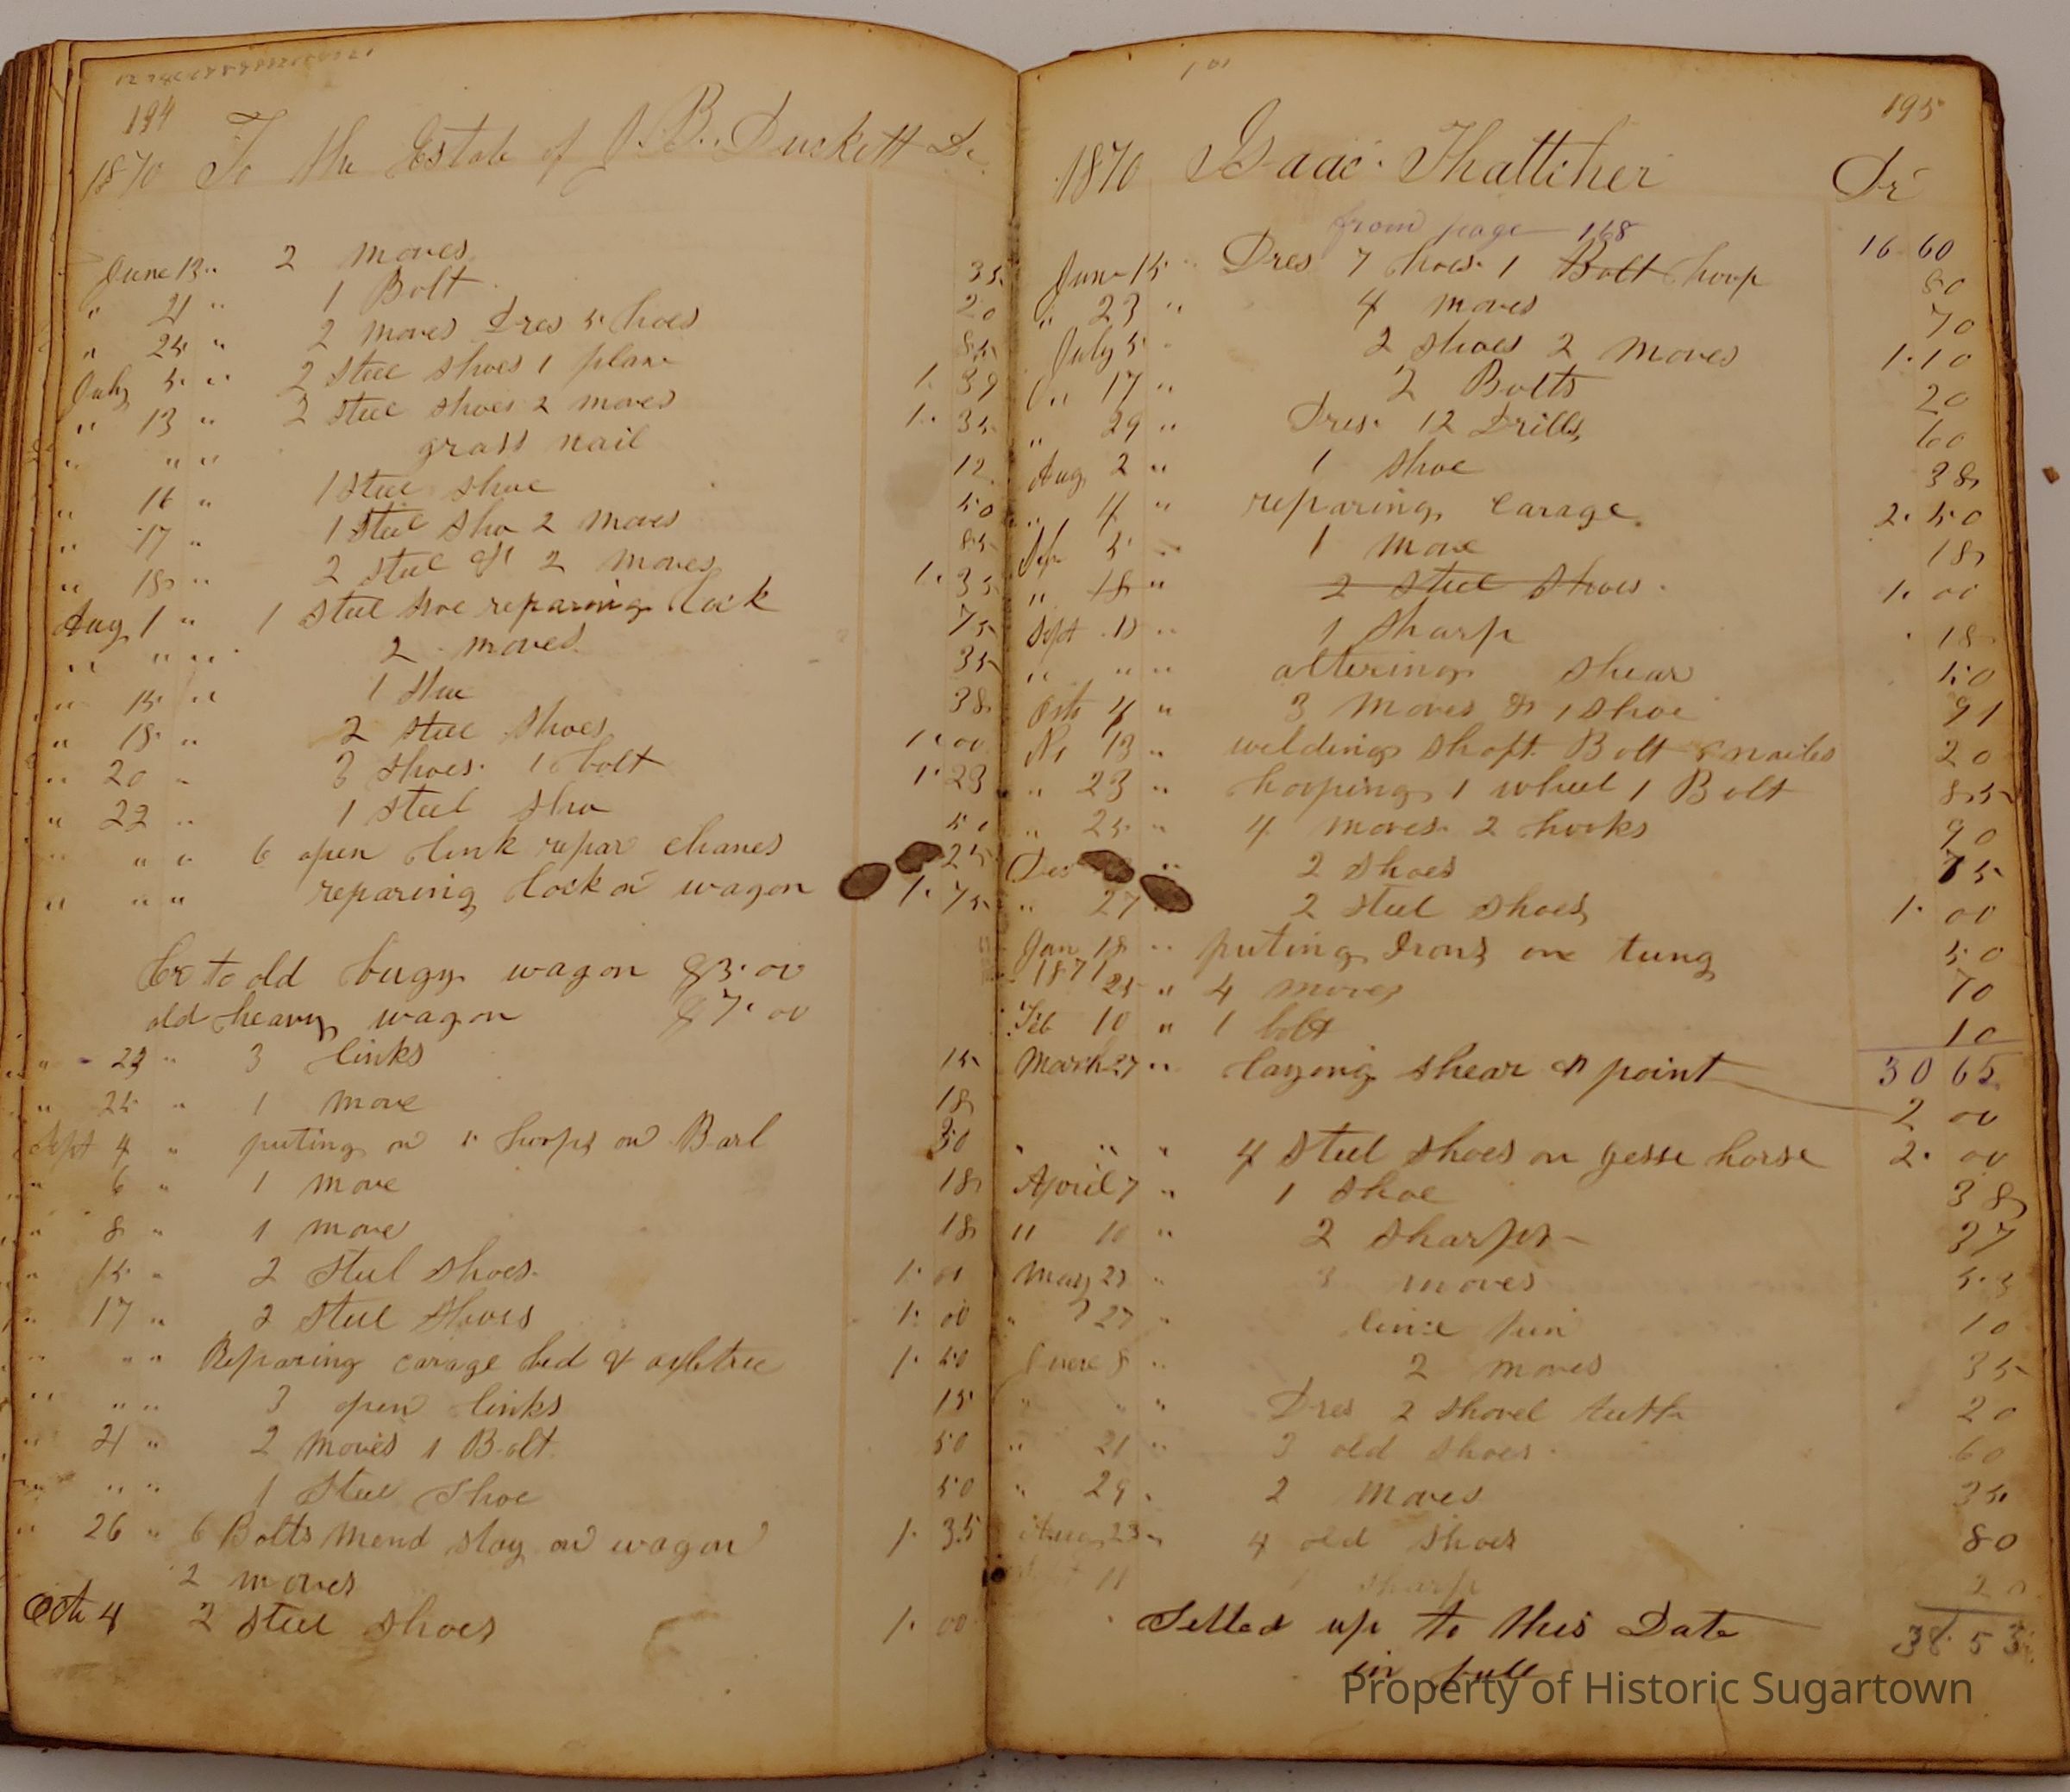 194
1870 To the Estate of J. B. Duckett Dr
June 13 " 2 moves 35
" 21 " 1 Bolt 20
" 25 " 2 moves Dres 5 hoes 85
July 5 " 2 steel shoes 1 plain 1. 39
" 13 " 2 steel shoes 2 moves 1. 35
" " " grass nail 12
" 16 " 1 steel shoe 50
" 17 " 1 steel sho 2 moves 85
" 18 " 2 steel 2 moves 1. 35
Aug 1 " 1 steel shoe reparing lock 75
" " " 2 moves 35
" 15 " 1 shoe 38
" 18 " 2 steel shoes 1. 00
" 20 " 3 shoes 1 bolt 1. 23
" 22 " 1 steel sho 50
" " " 6 open link repar chanes 25
" " " reparing lock on wagon 1. 75
Cr to old bugy wagon $3.00
old heavy wagon $7.00
" 23 " 3 links 15
" 25 " 1 move 18
Sept 4 " puting on hoops on Barl 30
" 6 " 1 move 18
" 8 " 1 move 18
" 15 " 2 steel shoes 1. 00
" 17 " 2 steel shoes 1. 00
" " " Reparing carage bed & axletree 1. 50
" " " 3 open links 15
" 21 " 2 moves 1 Bolt 50
" " " 1 Steel Shoe 50
" 26 " 6 Bolts mend stay on wagon 1. 35
2 moves
Octo 4 2 steel shoes 1. 00
195
1870 Isaac Thattcher Dr
from page 168 16 60
June 15 " Dres 7 hoes 1 Bolt hoop 80
" 23 " 4 moves 70
July 5 " 2 shoes 2 moves 1.10
" 17 " 2 Bolts 20
" 29 " Dres 12 Drills 60
Aug 2 " 1 shoe 38
" 4 " reparing carage 2. 50
5 " 1 move 18
" 18 " 2 steel shoes 1. 00
Sept " 1 sharp 18
" " " altering shear 50
Octo 4 " 3 moves & 1 shoe 91
No 13 " welding shaft Bolt & nailes 20
" 23 " hooping 1 wheel 1 Bolt 85
" 25 " 4 moves 2 hooks 90
Dec " 2 shoes 75
" 27 " 2 steel shoes 1. 00
Jan 18 " puting Irons on tung 50
1871 25 " 4 moves 70
Feb 10 " 1 bolt 10
30 65
March 27 " layong shear & point 2 00
" " " 4 steel shoes on Jesse horse 2. 00
April 7 " 1 shoe 38
" 10 " 2 sharps 37
May 23 " 3 moves 53
" 27 " line pin 10
June 8 " 2 moves 35
" " " Dres 2 shovel 20
" 21 " 3 old shoes 60
" 29 " 2 moves 35
Aug 23 " 4 old shoes 80
11 1 sharp 20
Setled up to this Date 38.53
in full
Property of Historic Sugartown